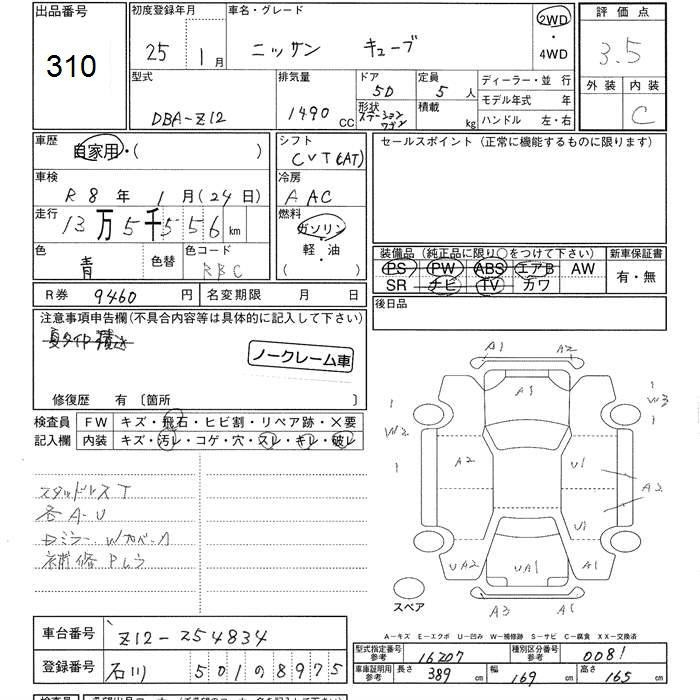 出品番号
310
初度登録年月
25年 1月
車名・グレード
ニッサン キューブ
2WD
・
4WD
評価点
3.5
外装 内装
C
型式
DBA-Z12
排気量
1490 CC
ドア
5D
形状
ステーションワゴン
定員
5人
積載
kg
ディーラー・並 行
モデル年式 年
ハンドル 左・右
車歴
自家用・( )
シフト
CVT(AT)
セールスポイント (正常に機能するものに限ります)
車検
R8年 1月(24日)
冷房
AAC
走行
13万5千556km
燃料
ガソリン
軽・油
( )
色
青
色替
色コード
RBC
装備品 (純正品に限り○をつけて下さい)
新車保証書
PS PW ABS エアB AW
SR ナビ TV カワ
有・無
R券 9460円 名変期限 月 日
後日品
注意事項申告欄(不具合内容等は具体的に記入して下さい)
夏タイヤ積込
ノークレーム車
修復歴 有 [箇所 ]
検査員 FW キズ・飛石・ヒビ割・リペア跡・X要
記入欄 内装 キズ・汚レ・コゲ・穴・スレ・キレ・破レ
スタッドレスT
各A-U
補修Pムラ
A1 A2
A3
W3
W2
A2 U1
A2
U1
UA2 UA1 A1
A3 A1
スペア
A-キズ E-エクボ U-凹み W-補修跡 S-サビ C-腐食 XX-交換済
車台番号 Z12-254834
登録番号 石川 501の8975
型式指定番号 参考 16207 種別区分番号 参考 0081
車庫証明用 参考 長さ 389cm 幅 169cm 高さ 165cm